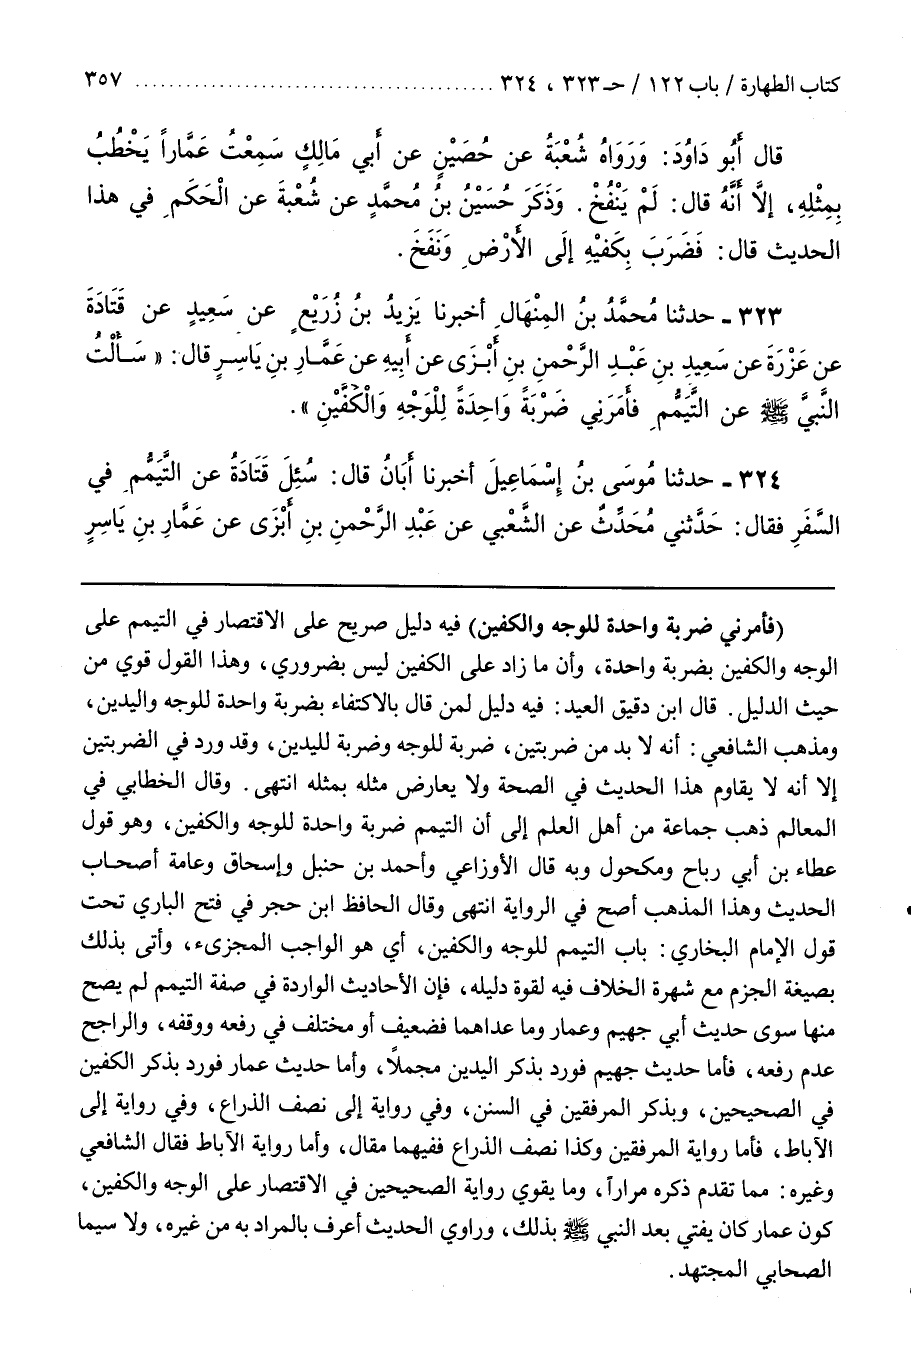 كتاب الطهارة / باب ١٢٢ / حـ ٣٢٣ ، ٣٢٤ .......................................... ٣٥٧
قال أَبُو دَاوُدَ: وَرَوَاهُ شُعْبَةُ عن حُصَيْنٍ عن أَبي مَالِكٍ سَمِعْتُ عَمَّاراً يَخْطُبُ
بِمِثْلِهِ، إلاَّ أَنَّهُ قال: لَمْ يَنْفُخْ. وَذَكَرَ حُسَيْنُ بنُ مُحمَّدٍ عن شُعْبَةَ عن الْحَكَمِ في هذا
الحديث قال: فَضَرَبَ بِكَفيْهِ إلَى الأَرْضِ وَنَفَخَ.
٣٢٣ ـ حدثنا مُحمَّدُ بنُ المِنْهَالِ أخبرنا يَزِيدُ بنُ زُرَيْعٍ عن سَعِيدٍ عن قَتَادَةَ
عن عَزْرَةَ عن سَعِيدِ بنِ عَبْدِ الرَّحْمنِ بنِ أَبْزَى عن أَبِيهِ عن عَمَّارِ بنِ يَاسِرٍ قال: «سَأَلْتُ
النَّبيَّ ﷺ عن التَّيَمُّمِ فأَمَرَنِي ضَرْبَةً وَاحِدَةً لِلْوَجْهِ وَالْكَفَّيْنِ».
٣٢٤ ـ حدثنا مُوسَى بنُ إسْمَاعِيلَ أخبرنا أَبَانُ قال: سُئِلَ قَتَادَةُ عن التَّيَمُّمِ في
السَّفَرِ فقال: حَدَّثني مُحَدِّثٌ عن الشَّعْبي عن عَبْدِ الرَّحْمنِ بنِ أَبْزَى عن عَمَّارِ بنِ يَاسِرٍ
(فأمرني ضربة واحدة للوجه والكفين) فيه دليل صريح على الاقتصار في التيمم على
الوجه والكفين بضربة واحدة، وأن ما زاد على الكفين ليس بضروري، وهذا القول قوي من
حيث الدليل. قال ابن دقيق العيد: فيه دليل لمن قال بالاكتفاء بضربة واحدة للوجه واليدين،
ومذهب الشافعي: أنه لا بد من ضربتين، ضربة للوجه وضربة لليدين، وقد ورد في الضربتين
إلا أنه لا يقاوم هذا الحديث في الصحة ولا يعارض مثله بمثله انتهى. وقال الخطابي في
المعالم ذهب جماعة من أهل العلم إلى أن التيمم ضربة واحدة للوجه والكفين، وهو قول
عطاء بن أبي رباح ومكحول وبه قال الأوزاعي وأحمد بن حنبل وإسحاق وعامة أصحاب
الحديث وهذا المذهب أصح في الرواية انتهى وقال الحافظ ابن حجر في فتح الباري تحت
قول الإمام البخاري: باب التيمم للوجه والكفين، أي هو الواجب المجزىء، وأتى بذلك
بصيغة الجزم مع شهرة الخلاف فيه لقوة دليله، فإن الأحاديث الواردة في صفة التيمم لم يصح
منها سوى حديث أبي جهيم وعمار وما عداهما فضعيف أو مختلف في رفعه ووقفه، والراجح
عدم رفعه، فأما حديث جهيم فورد بذكر اليدين مجملاً، وأما حديث عمار فورد بذكر الكفين
في الصحيحين، وبذكر المرفقين في السنن، وفي رواية إلى نصف الذراع، وفي رواية إلى
الآباط، فأما رواية المرفقين وكذا نصف الذراع ففيهما مقال، وأما رواية الآباط فقال الشافعي
وغيره: مما تقدم ذكره مراراً، وما يقوي رواية الصحيحين في الاقتصار على الوجه والكفين،
كون عمار كان يفتي بعد النبي ﷺ بذلك، وراوي الحديث أعرف بالمراد به من غيره، ولا سيما
الصحابي المجتهد.